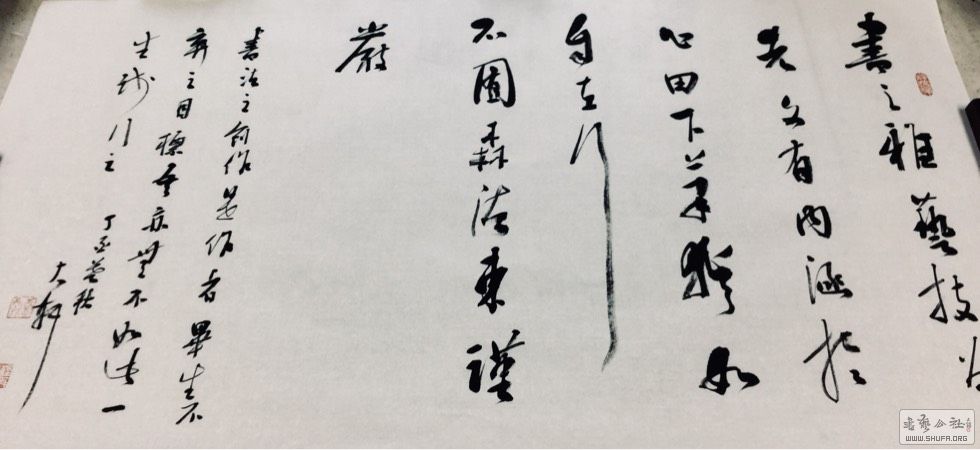 書之雅藝技
先文有內涵於
心田下筆如
自在行
不囿森法束謹
嚴
書法之創作是作者畢生不
弃之目標吾亦無不如法一
生践行之 丁酉暮秋
大軒
書藝公社
WWW.SHUFA.ORG